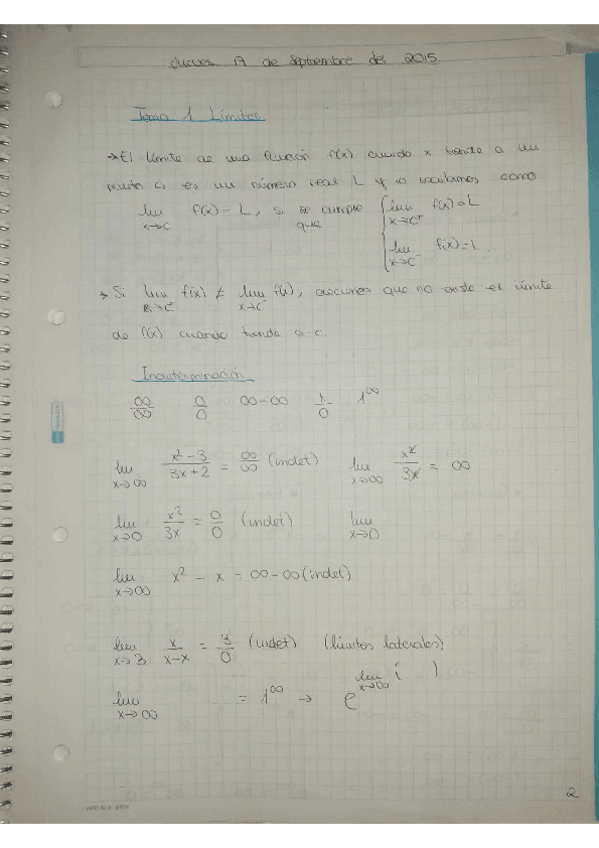 Jueves 17 de Septiembre del 2015
Tema 1 Límites
→ El límite de una función f(x) cuando x tiende a un
punto c, es un número real L y lo calculamos como
lim x→c f(x) = L, si se cumple que { lim x→c⁺ f(x) = L
{ lim x→c⁻ f(x) = L
→ Si lim x→c⁺ f(x) ≠ lim x→c⁻ f(x), decimos que no existe el límite
de f(x) cuando tiende a c.
Indeterminación
∞/∞ 0/0 ∞-∞ /0 1^∞
lim x→∞ (x²-3)/(3x+2) = ∞/∞ (indet) lim x→∞ x²/3x = ∞
lim x→0 x²/3x = 0/0 (indet) lim x→0
lim x→∞ x² - x = ∞-∞ (indet)
lim x→3 x/(x-x) = 3/0 (indet) (límites laterales)
lim x→∞ = 1^∞ → e^lim x→∞ ( )
2